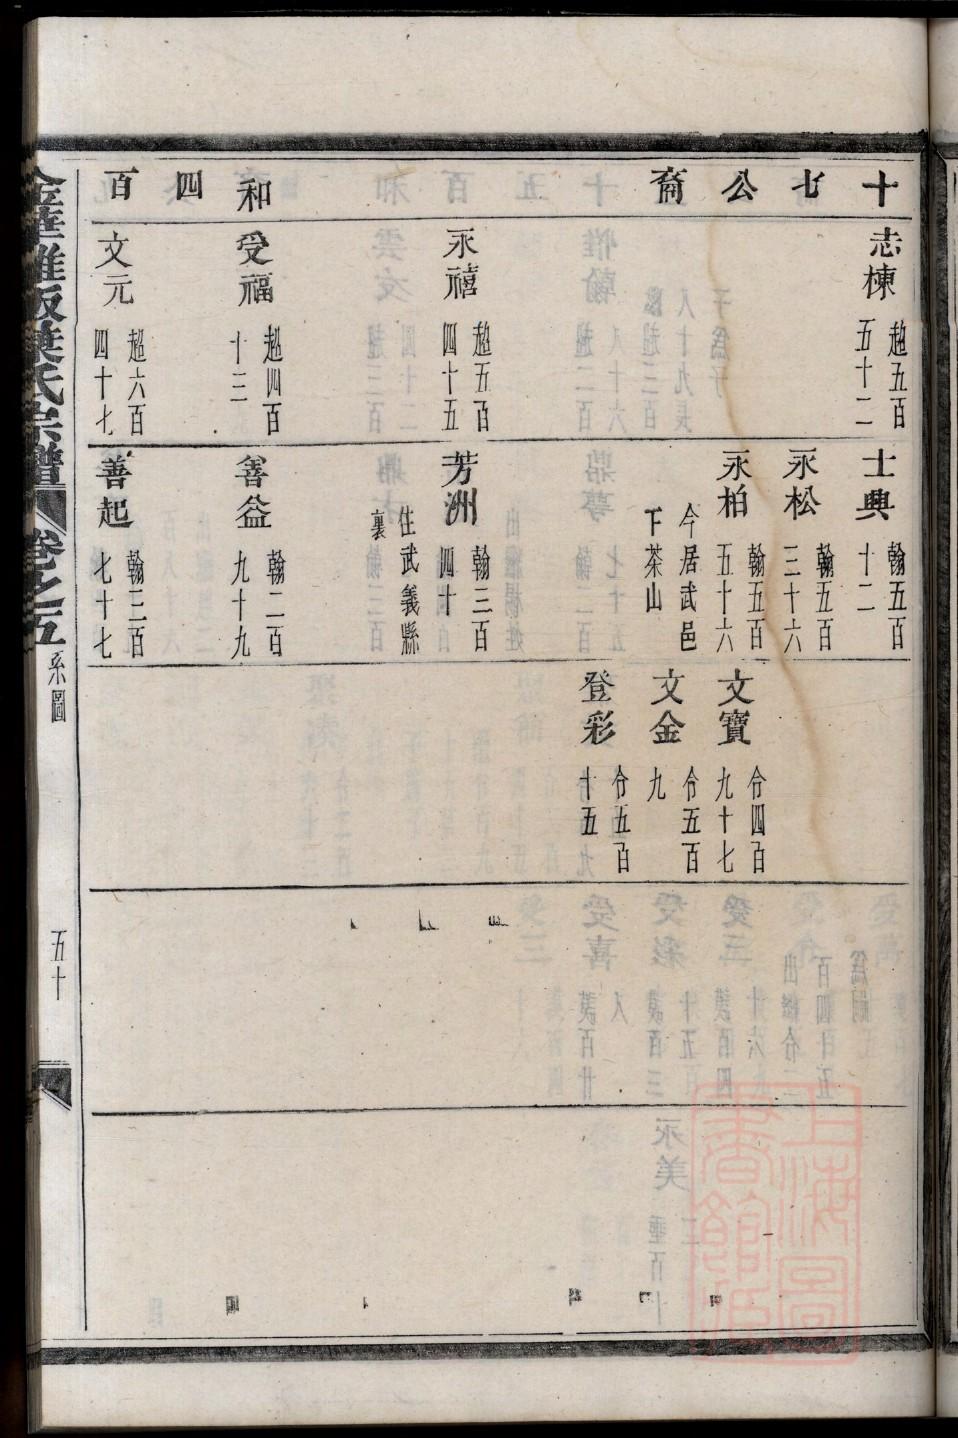 和四百十七公裔
志棟 趂五百五十二
永禧 趂五百四十五
受福 趂四百十三
文元 趂六百四十七
士興 翰五百十二
永松 翰五百三十六
永柏 翰五百五十六
今居武邑下茶山
芳洲 翰三百四十
住武義縣裏
善益 翰二百九十九
善起 翰三百七十七
文寶 令四百九十七
文金 令五百九
登彩 令五百十五
葉氏宗譜
卷之五
系圖
五十
上海圖書館藏